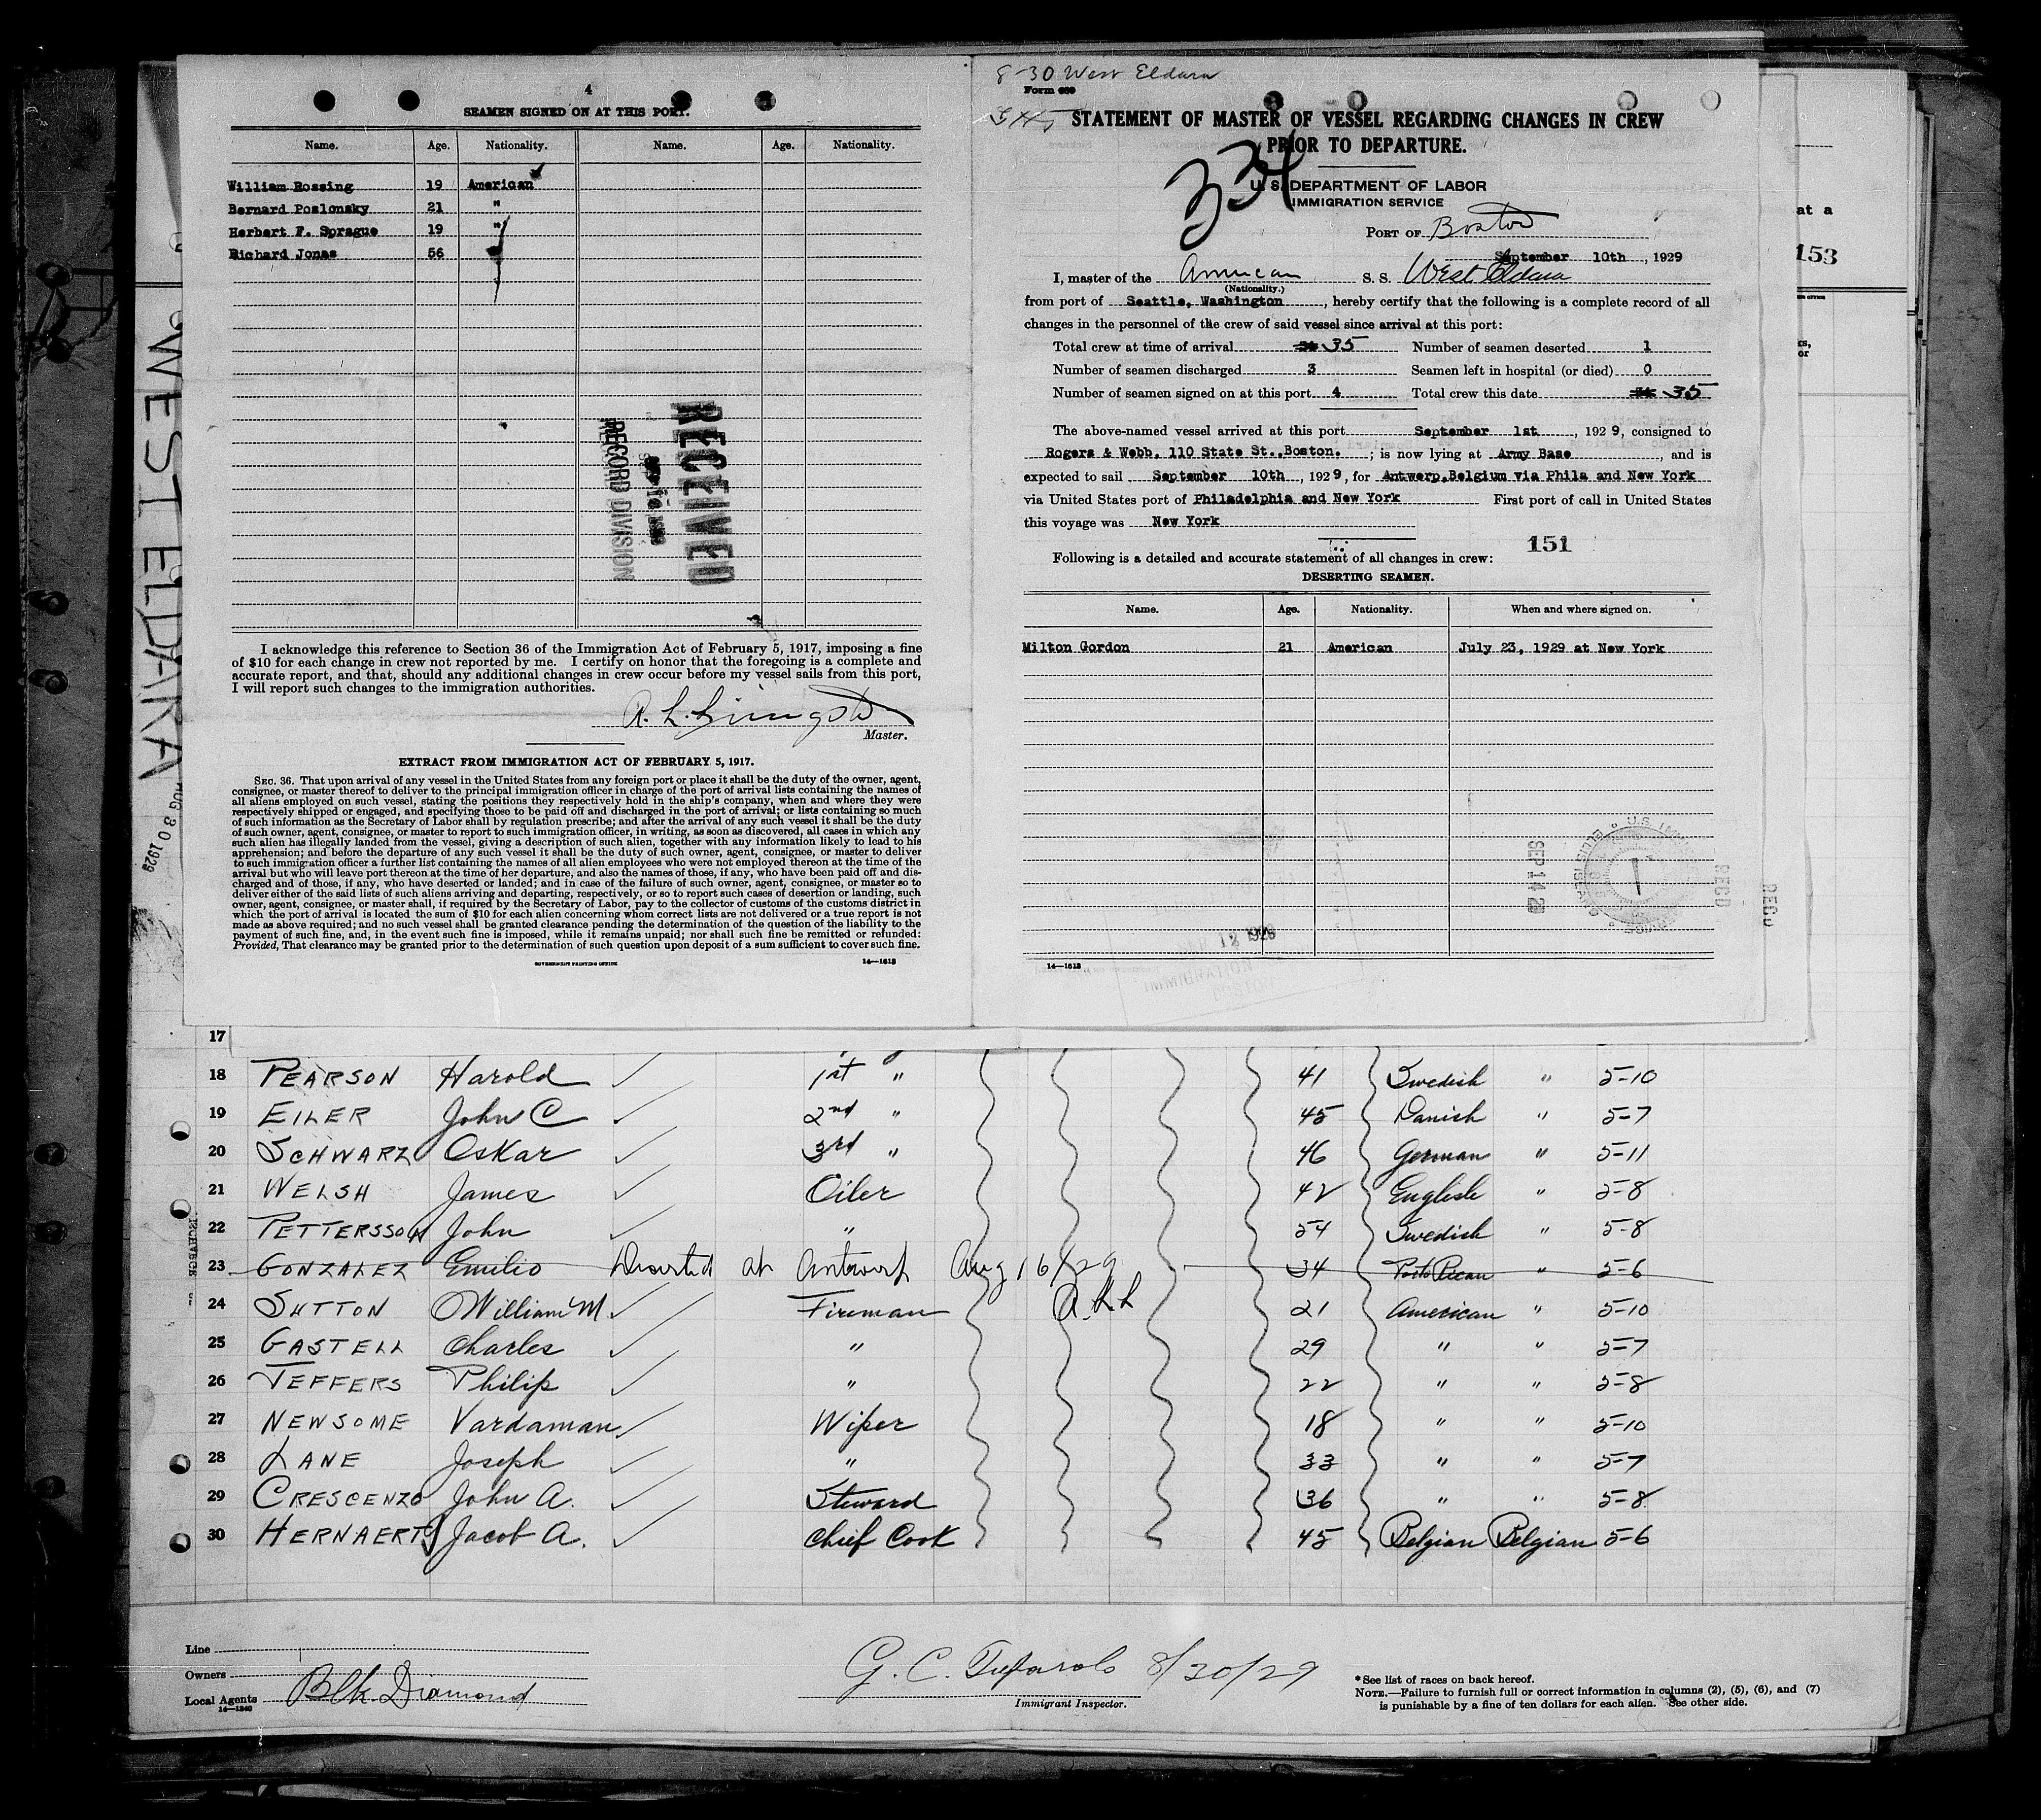 WEST ELDARA
AUG 30 1929
4
SEAMEN SIGNED ON AT THIS PORT.
Name. Age. Nationality. Name. Age. Nationality.
William Rossing 19 American
Bernard Poslonsky 21 "
Herbert F. Sprague 19 "
Richard Jonas 56 "
RECEIVED
RECORD DIVISION
I acknowledge this reference to Section 36 of the Immigration Act of February 5, 1917, imposing a fine
of $10 for each change in crew not reported by me. I certify on honor that the foregoing is a complete and
accurate report, and that, should any additional changes in crew occur before my vessel sails from this port,
I will report such changes to the immigration authorities.
A. L.
Master.
EXTRACT FROM IMMIGRATION ACT OF FEBRUARY 5, 1917.
SEC. 36. That upon arrival of any vessel in the United States from any foreign port or place it shall be the duty of the owner, agent,
consignee, or master thereof to deliver to the principal immigration officer in charge of the port of arrival lists containing the names of
all aliens employed on such vessel, stating the positions they respectively hold in the ship's company, when and where they were
respectively shipped or engaged, and specifying those to be paid off and discharged in the port of arrival; or lists containing so much
of such information as the Secretary of Labor shall by regulation prescribe; and after the arrival of any such vessel it shall be the duty
of such owner, agent, consignee, or master to report to such immigration officer, in writing, as soon as discovered, all cases in which any
such alien has illegally landed from the vessel, giving a description of such alien, together with any information likely to lead to his
apprehension; and before the departure of any such vessel it shall be the duty of such owner, agent, consignee, or master to deliver
to such immigration officer a further list containing the names of all alien employees who were not employed thereon at the time of the
arrival but who will leave port thereon at the time of her departure, and also the names of those, if any, who have been paid off and dis-
charged and of those, if any, who have deserted or landed; and in case of the failure of such owner, agent, consignee, or master so to
deliver either of the said lists of such aliens arriving and departing, respectively, or so to report such cases of desertion or landing, such
owner, agent, consignee, or master shall, if required by the Secretary of Labor, pay to the collector of customs of the customs district in
which the port of arrival is located the sum of $10 for each alien concerning whom correct lists are not delivered or a true report is not
made as above required; and no such vessel shall be granted clearance pending the determination of the question of the liability to the
payment of such fine, and, in the event such fine is imposed, while it remains unpaid; nor shall such fine be remitted or refunded:
Provided, That clearance may be granted prior to the determination of such question upon deposit of a sum sufficient to cover such fine.
GOVERNMENT PRINTING OFFICE 14—1613
8-30 West Eldara
Form 689
STATEMENT OF MASTER OF VESSEL REGARDING CHANGES IN CREW
PRIOR TO DEPARTURE.
334
U. S. DEPARTMENT OF LABOR
IMMIGRATION SERVICE
PORT OF Boston
September 10th, 1929
I, master of the American S. S. West Eldara
(Nationality.)
from port of Seattle, Washington, hereby certify that the following is a complete record of all
changes in the personnel of the crew of said vessel since arrival at this port:
Total crew at time of arrival 35 Number of seamen deserted 1
Number of seamen discharged 3 Seamen left in hospital (or died) 0
Number of seamen signed on at this port 4 Total crew this date 35
The above-named vessel arrived at this port September 1st, 1929, consigned to
Rogers & Webb, 110 State St.,Boston. ; is now lying at Army Base, and is
expected to sail September 10th, 1929, for Antwerp,Belgium via Phila and New York
via United States port of Philadelphia and New York First port of call in United States
this voyage was New York
151
Following is a detailed and accurate statement of all changes in crew:
DESERTING SEAMEN.
Name. Age. Nationality. When and where signed on.
Milton Gordon 21 American July 23, 1929 at New York
SEP 14
RECD
RECD
SEP 12 1929
IMMIGRATION
BOSTON
14—1613
at a
153
17
18 PEARSON Harold 1st " 41 Swedish " 5-10
19 EILER John C 2nd " 45 Danish " 5-7
20 SCHWARZ Oskar 3rd " 46 German " 5-11
21 WELSH James Oiler 42 English " 5-8
22 PETTERSSON John " 54 Swedish " 5-8
23 GONZALEZ Emilio Deserted at Antwerp Aug 16/29 34 Porto Rican " 5-6
24 SUTTON William M Fireman 21 American " 5-10
25 GASTELL Charles " 29 " " 5-7
26 JEFFERS Philip " 22 " " 5-8
27 NEWSOME Vardaman Wiper 18 " " 5-10
28 LANE Joseph " 33 " " 5-7
29 CRESCENZO John A. Steward 36 " " 5-8
30 HERNAERTS Jacob A. Chief Cook 45 Belgian Belgian 5-6
Line
Owners
Local Agents Blk Diamond
14—1240
G. C. 8/30/29
Immigrant Inspector.
* See list of races on back hereof.
NOTE.—Failure to furnish full or correct information in columns (2), (5), (6), and (7)
is punishable by a fine of ten dollars for each alien. See other side.